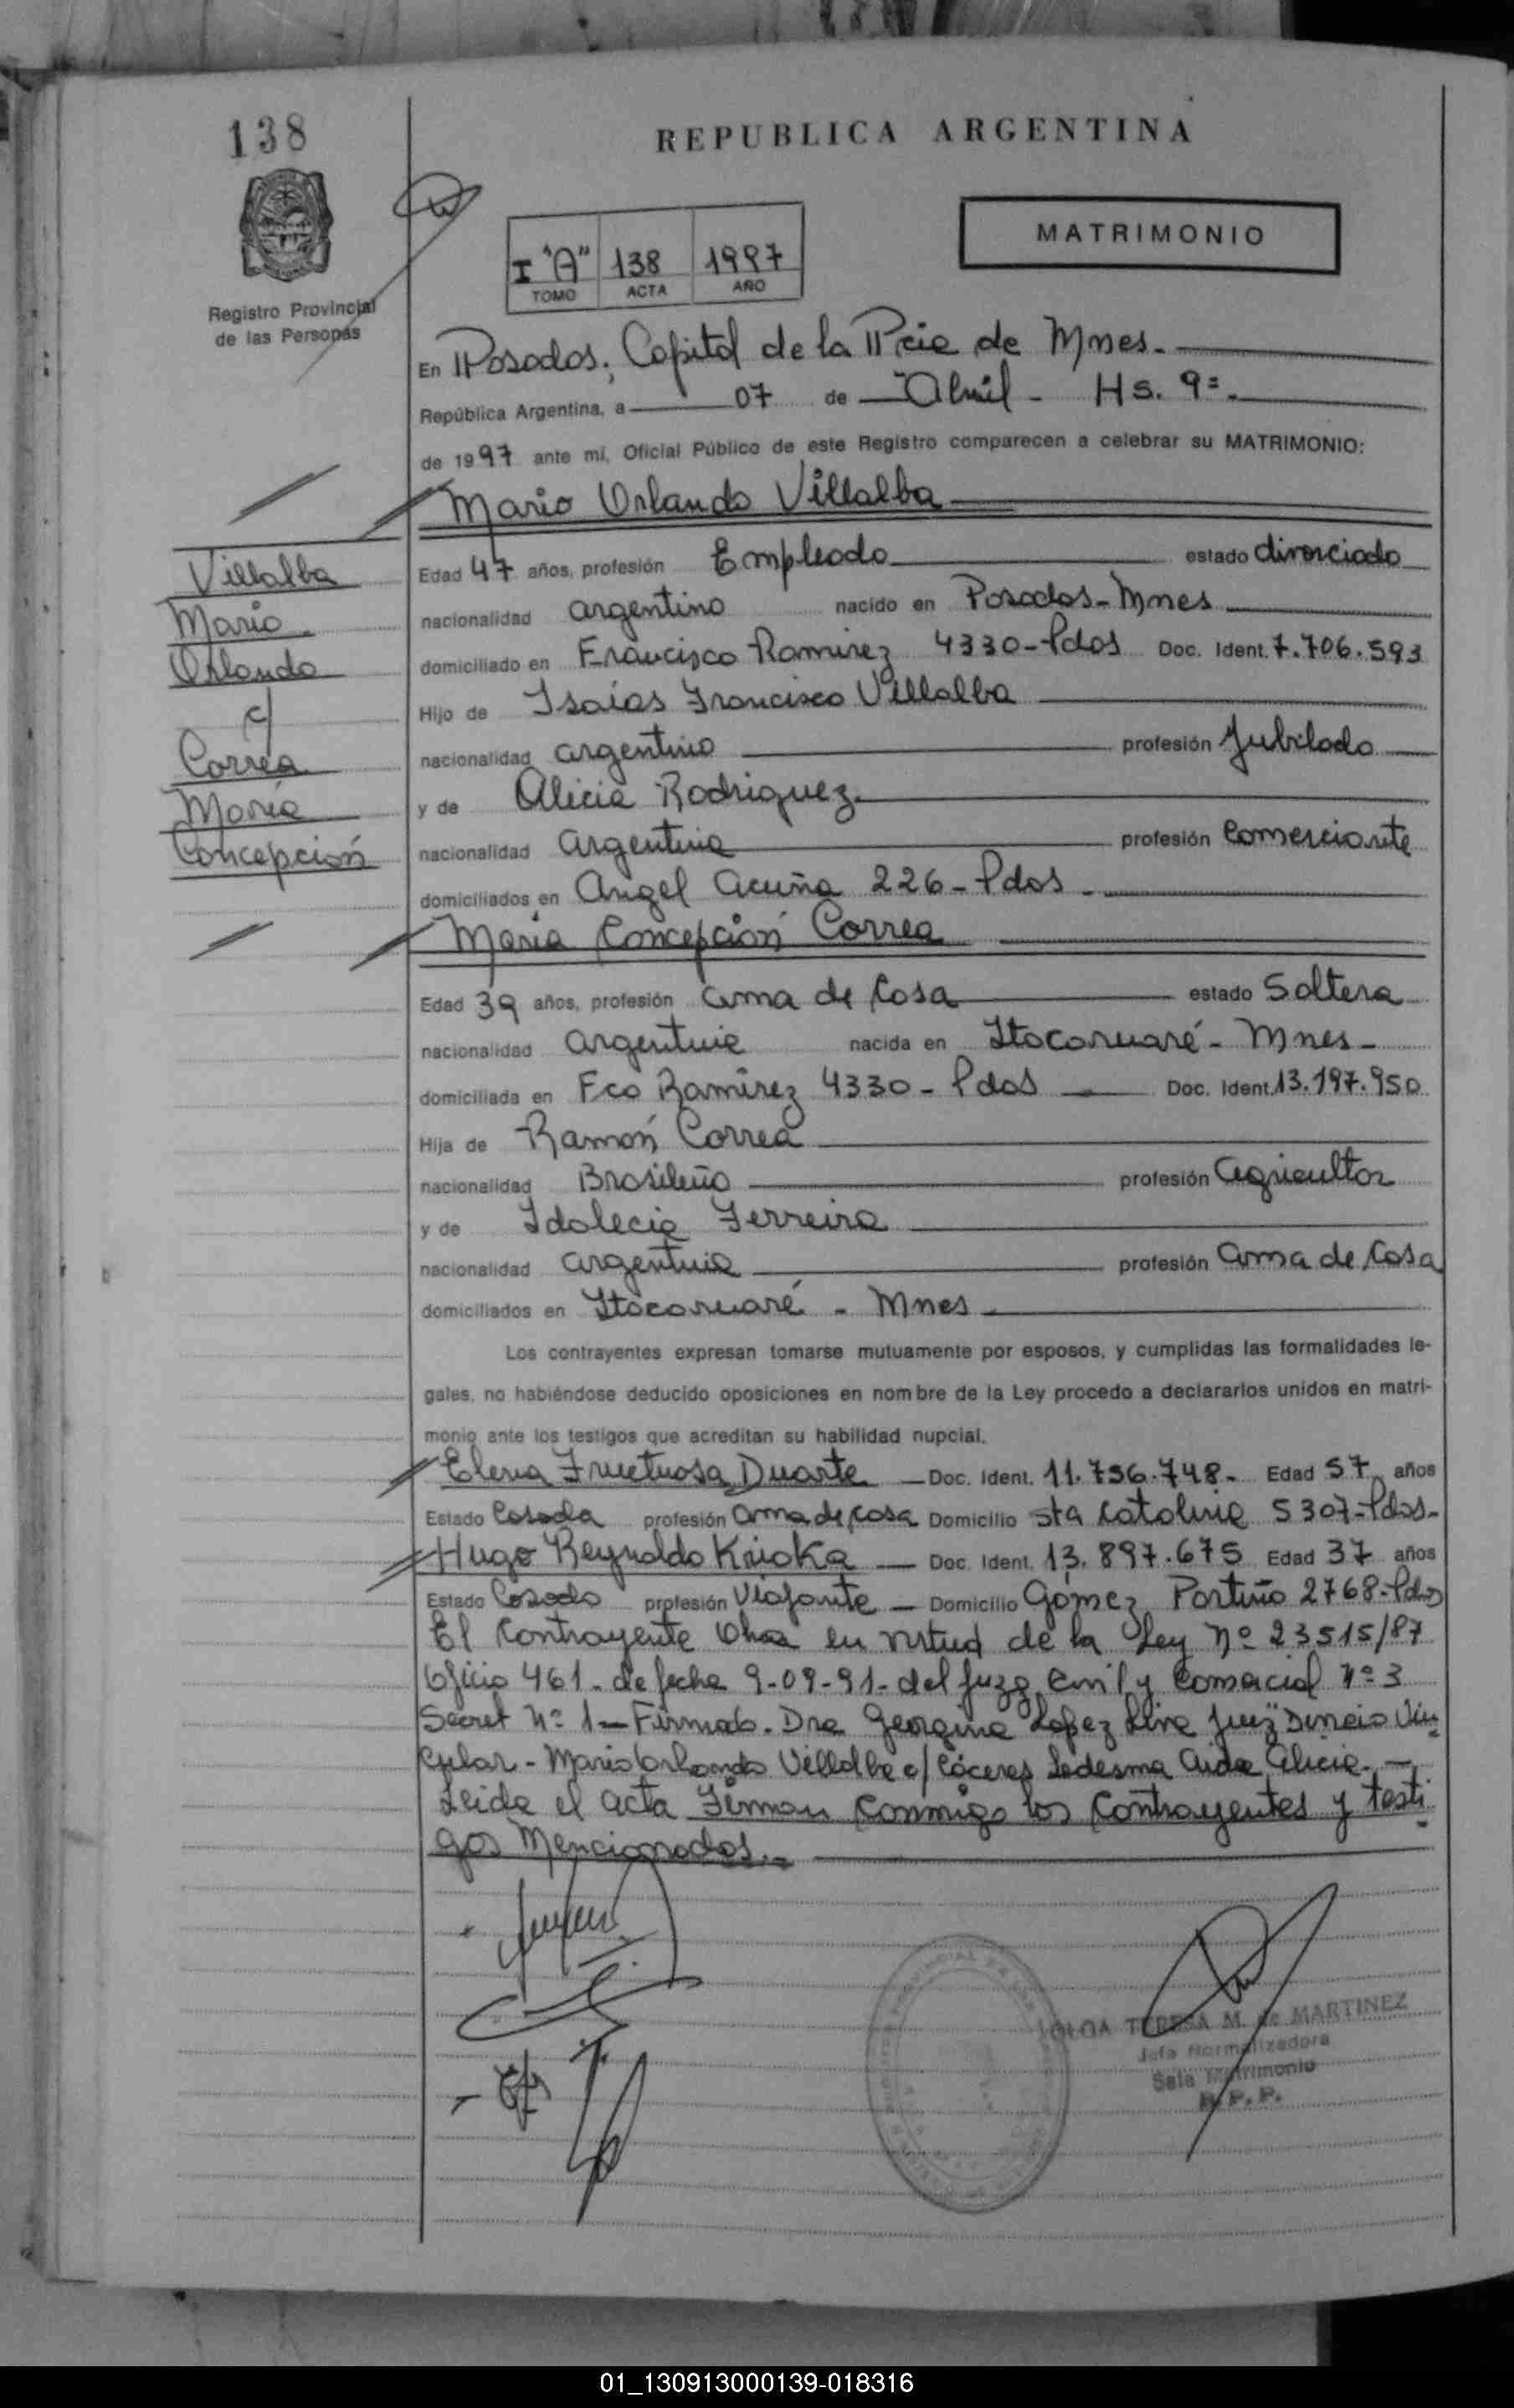 138
REPUBLICA ARGENTINA
MATRIMONIO
I "A" 138 1997
TOMO ACTA AÑO
Registro Provincial
de las Personas
En Posadas, Capital de la Pcia de Mnes.
República Argentina, a 07 de Abril - Hs. 9=.
de 1997 ante mí, Oficial Público de este Registro comparecen a celebrar su MATRIMONIO:
Mario Orlando Villalba
Villalba
Mario
Orlando
c/
Correa
María
Concepción
Edad 47 años, profesión Empleado estado divorciado
nacionalidad argentino nacido en Posadas-Mnes
domiciliado en Francisco Ramirez 4330-Pdas Doc. Ident. 7.706.593
Hijo de Isaías Francisco Villalba
nacionalidad argentino profesión Jubilado
y de Alicia Rodriguez.
nacionalidad argentina profesión Comerciante
domiciliados en Angel Acuña 226 - Pdas -
María Concepción Correa
Edad 39 años, profesión ama de Casa estado Soltera
nacionalidad argentina nacida en Itacaruaré - Mnes -
domiciliada en Fco Ramirez 4330 - Pdas Doc. Ident. 13.197.950
Hija de Ramón Correa
nacionalidad Brasileño profesión agricultor
y de Idalecia Ferreira
nacionalidad argentina profesión ama de Casa
domiciliados en Itacaruaré - Mnes
Los contrayentes expresan tomarse mutuamente por esposos, y cumplidas las formalidades le-
gales, no habiéndose deducido oposiciones en nombre de la Ley procedo a declararlos unidos en matri-
monio ante los testigos que acreditan su habilidad nupcial.
Elena Fructuosa Duarte - Doc. Ident. 11.756.748- Edad 57 años
Estado Casada profesión ama de casa Domicilio Sta Catalina 5307-Pdas-
Hugo Reynaldo Krioka - Doc. Ident. 13.897.675 Edad 37 años
Estado Casado profesión Viajante - Domicilio Gómez Portiño 2768-Pdas
El Contrayente en virtud de la Ley Nº 23515/87
Oficio 461 - de fecha 9-09-91 - del Juzg Civil y Comercial Nº 3
Secret Nº 1 - Firmado. Dra Georgina Lopez Juez Divorcio Vin=
cular - Mario Orlando Villalba c/ Cáceres Ledesma Aida Alicia. -
Leida el acta Firman Conmigo los Contrayentes y testi
gos Mencionados.=
OLGA TERESA M. de MARTINEZ
Jefa Normalizadora
Sala Matrimonio
R. P. P.
01_130913000139-018316